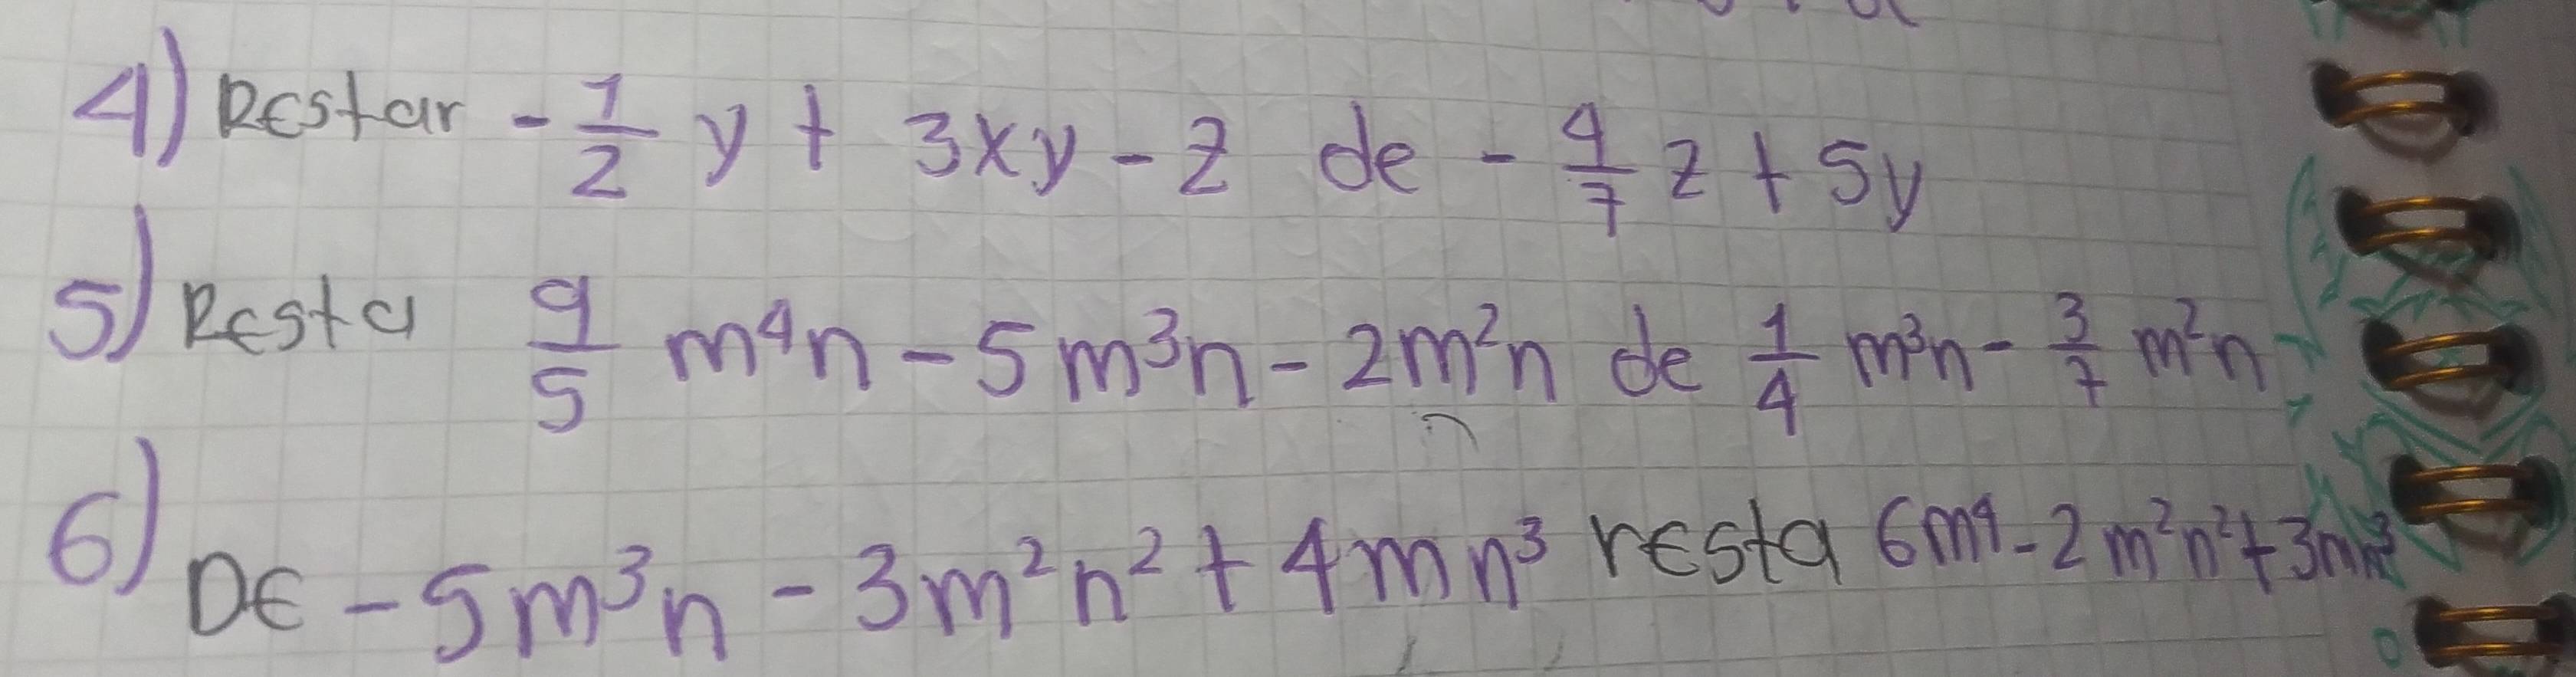 4) Restar - 1/2 y + 3xy - z de - 4/7 z + 5y
5) Resta 9/5 m⁴n - 5m³n - 2m²n de 1/4 m³n - 3/7 m²n
6) De - 5m³n - 3m²n² + 4mn³ resta 6m⁴ - 2m²n² + 3mn³